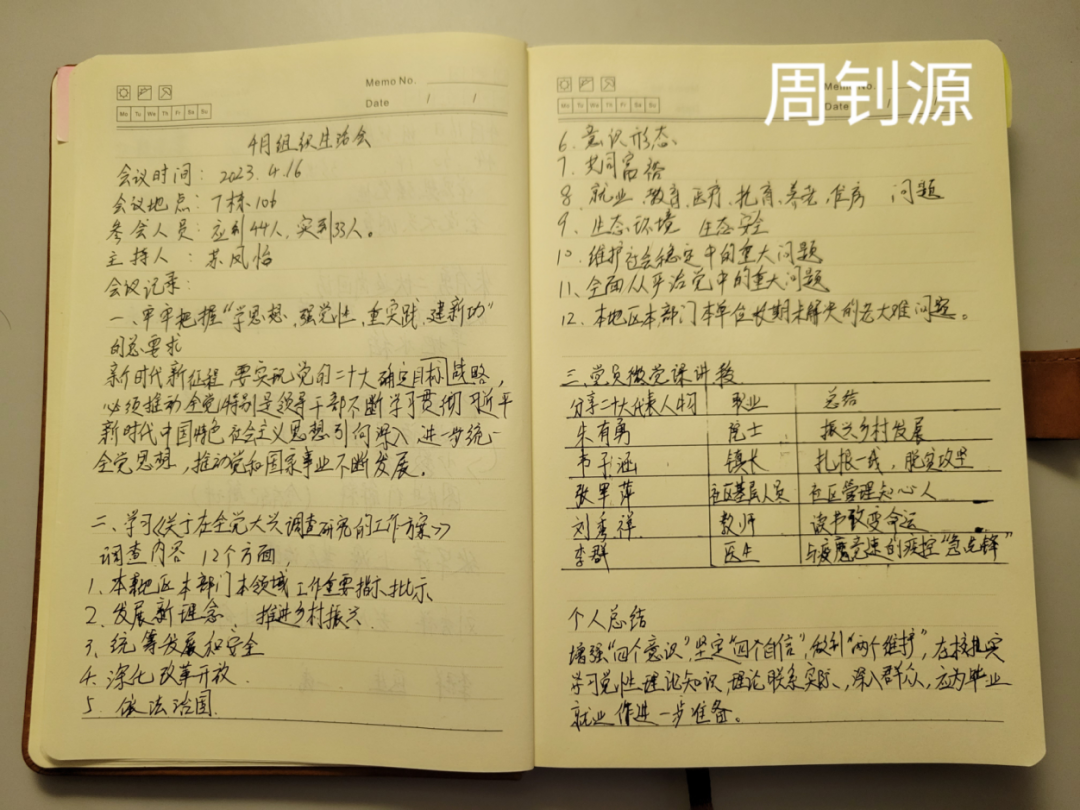 Memo No.
Date / /
Mo Tu We Th Fr Sa Su
4月组织生活会
会议时间：2023.4.16
会议地点：7栋106
参会人员：应到44人，实到33人。
主持人：苏凤怡
会议记录：
一、牢牢把握“学思想，强党性，重实践，建新功”
的总要求
新时代新征程，要实现党的二十大确定目标战略，
必须推动全党特别是领导干部不断学习贯彻习近平
新时代中国特色社会主义思想引向深入 进一步统一
全党思想，推动党和国家事业不断发展。
二、学习《关于在全党大兴调查研究的工作方案》
调查内容 12个方面，
1、本地区本部门本领域工作重要指示批示
2、发展新理念、推进乡村振兴
3、统筹发展和安全
4、深化改革开放.
5、依法治国.
周钊源
Memo No.
Date / /
Mo Tu We Th Fr Sa Su
6、意识形态、
7、共同富裕
8、就业、教育、医疗、托育、养老、住房 问题
9、生态环境 生态安全
10、维护社会稳定中的重大问题
11、全面从严治党中的重大问题
12、本地区本部门本单位长期未解决的老大难问题。
三、党员微党课讲授
分享二十大代表人物 职业 总结
朱有勇 院士 振兴乡村发展
韦子涵 镇长 扎根一线，脱贫攻坚
张军萍 社区基层人员 社区管理知心人
刘秀祥 教师 读书改变命运
李群 医生 与疫魔竞速的疾控“急先锋”
个人总结
增强“四个意识”，坚定“四个自信”，做到“两个维护”，
学习党性理论知识，理论联系实际、深入群众，应为毕业
就业作进一步准备。